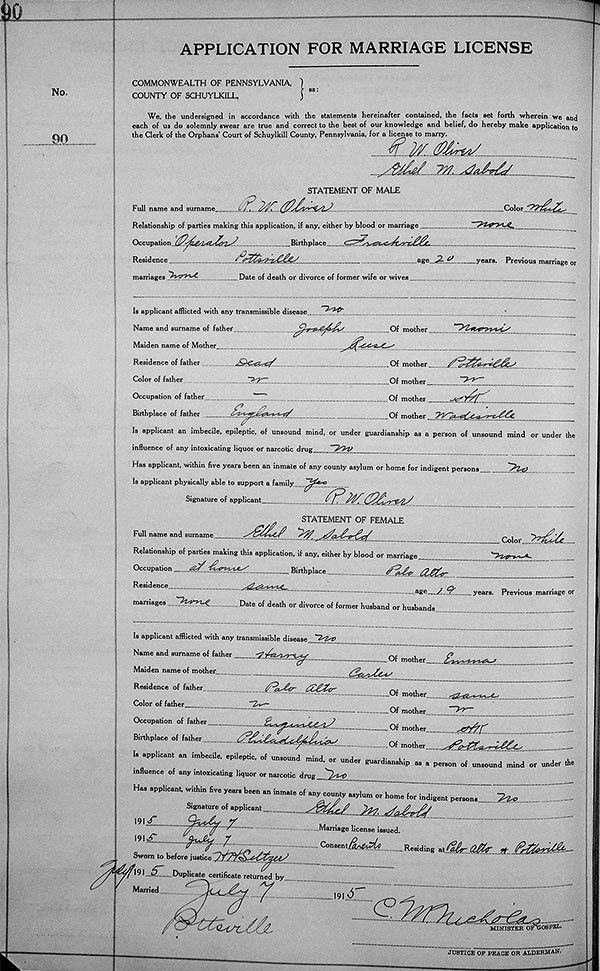 90
APPLICATION FOR MARRIAGE LICENSE
No.
90
COMMONWEALTH OF PENNSYLVANIA,
COUNTY OF SCHUYLKILL, } ss:
We, the undersigned in accordance with the statements hereinafter contained, the facts set forth wherein we and
each of us do solemnly swear are true and correct to the best of our knowledge and belief, do hereby make application to
the Clerk of the Orphans' Court of Schuylkill County, Pennsylvania, for a license to marry.
R. W. Oliver
Ethel M. Sabold
STATEMENT OF MALE
Full name and surname R. W. Oliver Color White
Relationship of parties making this application, if any, either by blood or marriage none
Occupation Operator Birthplace Frackville
Residence Pottsville age 20 years. Previous marriage or
marriages none Date of death or divorce of former wife or wives
Is applicant afflicted with any transmissible disease no
Name and surname of father Joseph Of mother Naomi
Maiden name of Mother Reese
Residence of father Dead Of mother Pottsville
Color of father W Of mother W
Occupation of father — Of mother HK
Birthplace of father England Of mother Wadesville
Is applicant an imbecile, epileptic, of unsound mind, or under guardianship as a person of unsound mind or under the
influence of any intoxicating liquor or narcotic drug no
Has applicant, within five years been an inmate of any county asylum or home for indigent persons no
Is applicant physically able to support a family yes
Signature of applicant R. W. Oliver
STATEMENT OF FEMALE
Full name and surname Ethel M. Sabold Color White
Relationship of parties making this application, if any, either by blood or marriage none
Occupation at home Birthplace Palo Alto
Residence same age 19 years. Previous marriage or
marriages none Date of death or divorce of former husband or husbands
Is applicant afflicted with any transmissible disease no
Name and surname of father Harvey Of mother Emma
Maiden name of mother Carter
Residence of father Palo Alto Of mother same
Color of father W Of mother W
Occupation of father Engineer Of mother HK
Birthplace of father Philadelphia Of mother Pottsville
Is applicant an imbecile, epileptic, of unsound mind, or under guardianship as a person of unsound mind or under the
influence of any intoxicating liquor or narcotic drug no
Has applicant, within five years been an inmate of any county asylum or home for indigent persons no
Signature of applicant Ethel M. Sabold
1915 July 7 Marriage license issued.
1915 July 7 Consent Parents Residing at Palo Alto & Pottsville
Sworn to before justice H H Seltzer
1915 Duplicate certificate returned by
Married July 7 1915
Pottsville
C. M. Nicholas
MINISTER OF GOSPEL.
JUSTICE OF PEACE OR ALDERMAN.